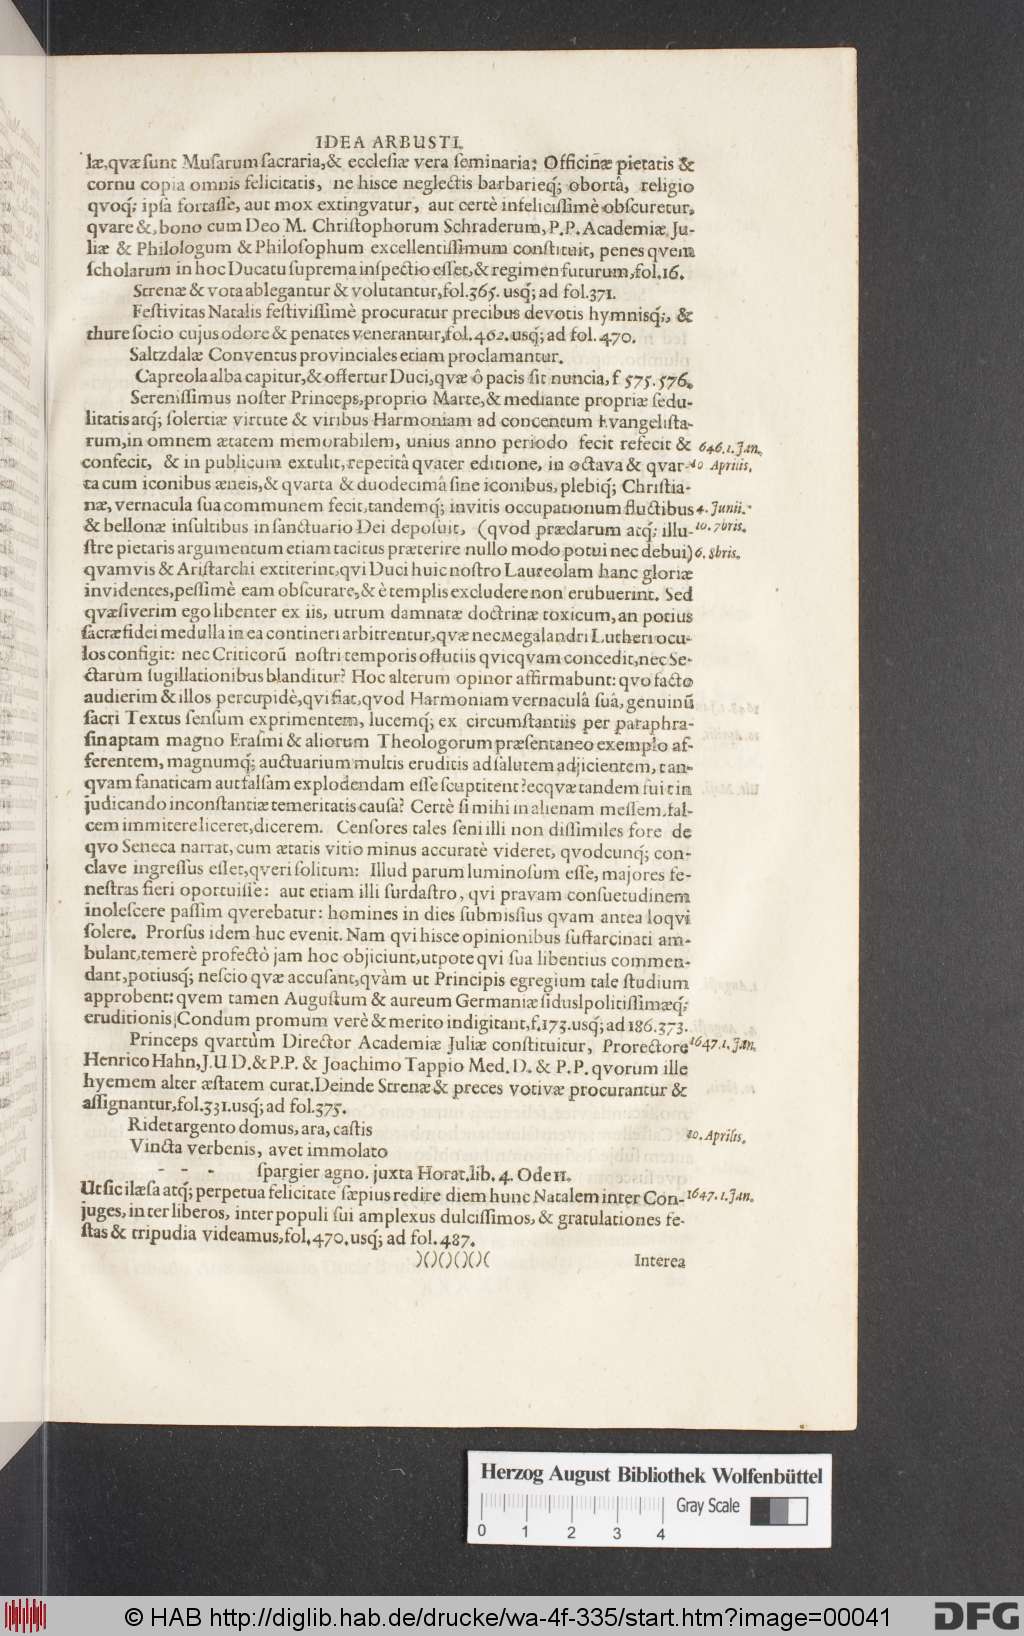 IDEA ARBUSTI.
læ,qvæ sunt Musarum sacraria,& ecclesiæ vera seminaria; Officinæ pietatis &
cornu copia omnis felicitatis, ne hisce neglectis barbarieq́; obortâ, religio
qvoq́; ipsa fortasse, aut mox extingvatur, aut certè infelicissimè obscuretur,
qvare &, bono cum Deo M. Christophorum Schraderum, P.P. Academiæ Ju-
liæ & Philologum & Philosophum excellentissimum constituit, penes qvem
scholarum in hoc Ducatu suprema inspectio esset,& regimen futurum,fol.16.
Strenæ & vota ablegantur & volutantur,fol.365. usq́; ad fol.371.
Festivitas Natalis festivissimè procuratur precibus devotis hymnisq́;, &
thure socio cujus odore & penates venerantur,fol.462.usq́; ad fol.470.
Saltzdalæ Conventus provinciales etiam proclamantur.
Capreola alba capitur,& offertur Duci,qvæ ô pacis sit nuncia,f 575.576.
Serenissimus noster Princeps,proprio Marte,& mediante propriæ sedu-
litatis atq́; solertiæ virtute & viribus Harmoniam ad concentum Evangelista-
rum,in omnem ætatem memorabilem, unius anno periodo fecit refecit & 646.1.Jan.
confecit, & in publicum extulit,repetitâ qvater editione, in octava & qvar- 10 Aprilis,
ta cum iconibus æneis,& qvarta & duodecimâ sine iconibus, plebiq́; Christia-
næ, vernacula sua communem fecit,tandemq́; invitis occupationum fluctibus 4. Junii.
& bellonæ insultibus in sanctuario Dei deposuit, (qvod præclarum atq́; illu- 10. 7bris.
stre pietatis argumentum etiam tacitus præterire nullo modo potui nec debui) 6. 8bris.
qvamvis & Aristarchi extiterint,qvi Duci huic nostro Laureolam hanc gloriæ
invidentes,pessimè eam obscurare,& è templis excludere non erubuerint. Sed
qvæsiverim ego libenter ex iis, utrum damnatæ doctrinæ toxicum,an potius
sacræ fidei medulla in ea contineri arbitrentur,qvæ nec Megalandri Lutheri ocu-
los configit: nec Criticorũ nostri temporis offutiis qvicqvam concedit,nec Se-
ctarum sugillationibus blanditur? Hoc alterum opinor affirmabunt: qvo facto
audierim & illos percupidè,qvi fiat,qvod Harmoniam vernaculâ suâ, genuinũ
sacri Textus sensum exprimentem, lucemq́; ex circumstantiis per paraphra-
sin aptam magno Erasmi & aliorum Theologorum præsentaneo exemplo af-
ferentem, magnumq́; auctuarium multis eruditis ad salutem adjicientem, tan-
qvam fanaticam aut falsam explodendam esse scuptitent? ecqvæ tandem fuit in
judicando inconstantiæ temeritatis causa? Certè si mihi in alienam messem,fal-
cem immitere liceret,dicerem. Censores tales seni illi non dissimiles fore de
qvo Seneca narrat, cum ætatis vitio minus accuratè videret, qvodcunq́; con-
clave ingressus esset,qveri solitum: Illud parum luminosum esse, majores fe-
nestras fieri oportuisse: aut etiam illi surdastro, qvi pravam consuetudinem
inolescere passim qverebatur: homines in dies submissius qvam antea loqvi
solere. Prorsus idem huc evenit. Nam qvi hisce opinionibus suffarcinati am-
bulant,temerè profectò jam hoc objiciunt,utpote qvi sua libentius commen-
dant,potiusq́; nescio qvæ accusant,qvàm ut Principis egregium tale studium
approbent: qvem tamen Augustum & aureum Germaniæ sidus|politissimæq́;
eruditionis Condum promum verè & merito indigitant,f.173.usq́; ad 186.373.
Princeps qvartùm Director Academiæ Juliæ constituitur, Prorectore 1647.1.Jan.
Henrico Hahn, J.U D.& P.P. & Joachimo Tappio Med. D. & P. P. qvorum ille
hyemem alter æstatem curat. Deinde Strenæ & preces votivæ procurantur &
assignantur,fol.331.usq́; ad fol.375.
Ridet argento domus, ara, castis 10. Aprilis.
Vincta verbenis, avet immolato
- - - spargier agno. juxta Horat.lib. 4. Ode 11.
Ut sic ilæsa atq́; perpetua felicitate sæpius redire diem hunc Natalem inter Con- 1647. 1. Jan.
juges, inter liberos, inter populi sui amplexus dulcissimos, & gratulationes fe-
stas & tripudia videamus,fol,470.usq́; ad fol. 487.
)()()()()( Interea
Herzog August Bibliothek Wolfenbüttel
Gray Scale
0 1 2 3 4
© HAB http://diglib.hab.de/drucke/wa-4f-335/start.htm?image=00041
DFG